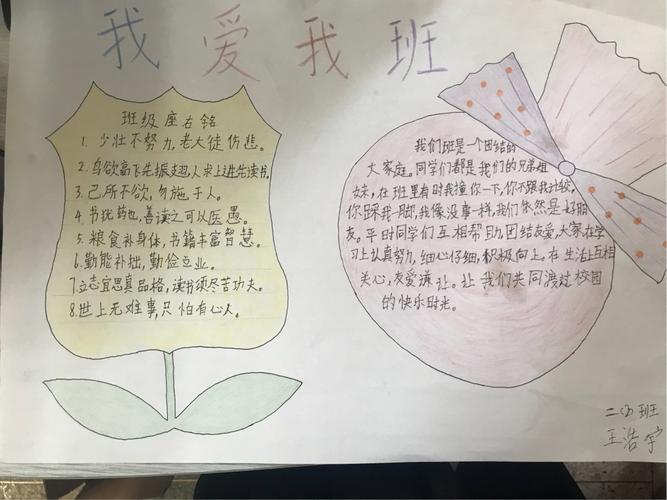 我爱我班
班级座右铭
1. 少壮不努力,老大徒伤悲。
2. 鸟欲高飞先振翅,人求上进先读书。
3. 己所不欲,勿施于人。
4. 书犹药也,善读之可以医愚。
5. 粮食补身体,书籍丰富智慧。
6. 勤能补拙,勤俭立业。
7. 立志宜思真品格,读书须尽苦功夫。
8. 世上无难事,只怕有心人。
我们班是一个团结的
大家庭。同学们都是我们的兄弟姐
妹,在班里有时我撞你一下,你不跟我计较,
你踩我一脚,我像没事一样,我们依然是好朋
友。平时同学们互相帮助团结友爱,大家在学
习上认真努力,细心仔细,积极向上。在生活上互相
关心,友爱谦让。让我们共同渡过校园
的快乐时光。
班
王浩宇